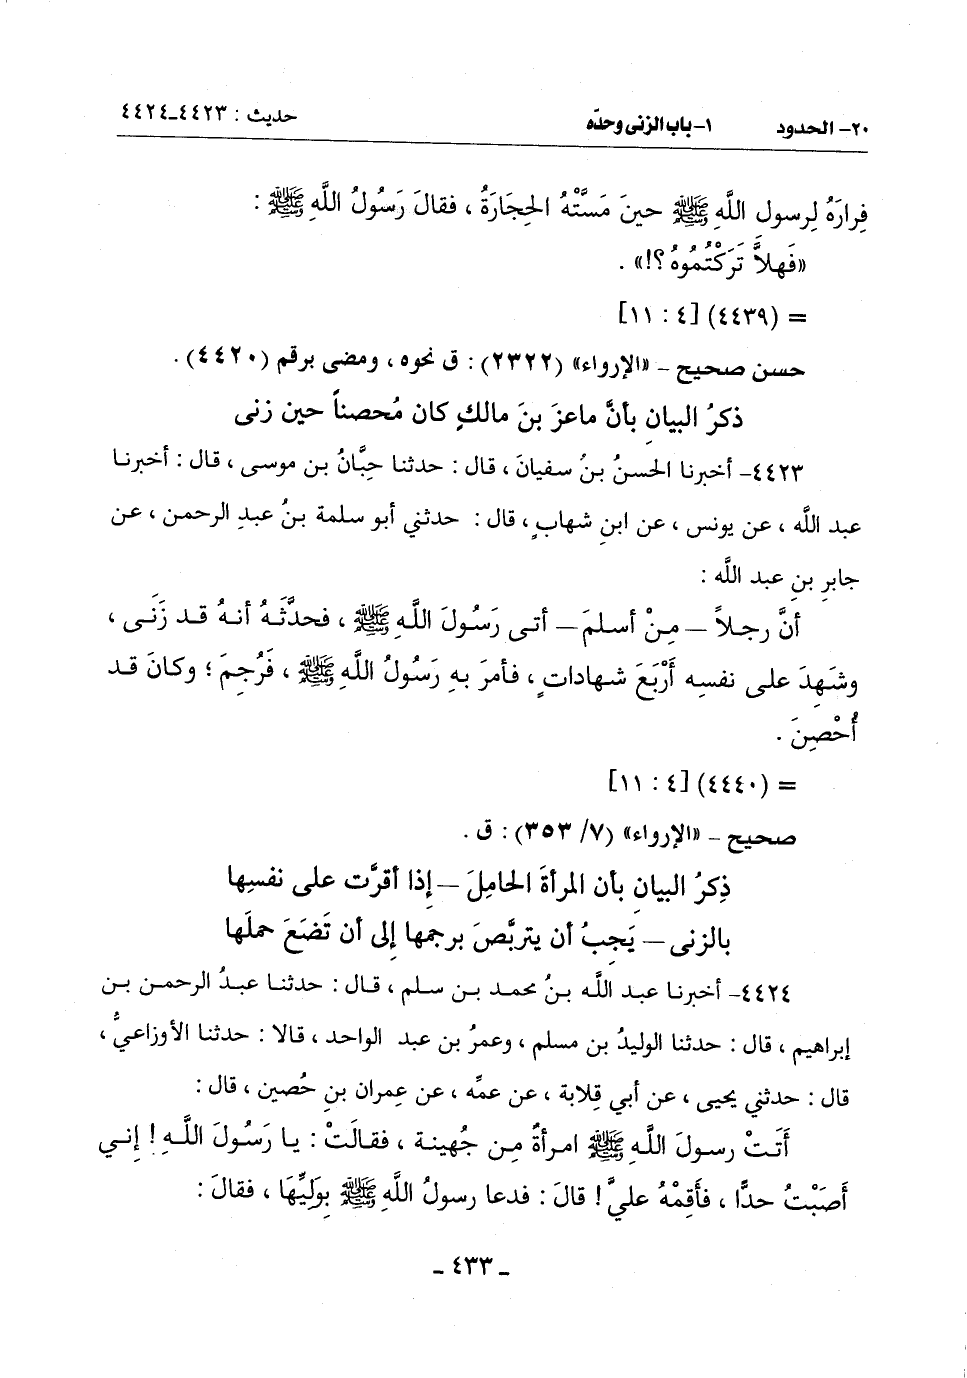 ٢٠- الحدود ١- باب الزنى وحدّه حديث : ٤٤٢٣-٤٤٢٤
فِرارَهُ لِرسول اللَّهِ ﷺ حينَ مَسَّتْهُ الحِجَارَةُ ، فقالَ رَسُولُ اللَّهِ ﷺ :
«فَهلاَّ تَرَكْتُمُوهُ؟!» .
= (٤٤٣٩) [٤ : ١١]
حسن صحيح - «الإرواء» (٢٣٢٢) : ق نحوه ، ومضى برقم (٤٤٢٠) .
ذكرُ البيانِ بأنَّ ماعزَ بنَ مالكٍ كان مُحصناً حين زنى
٤٤٢٣- أخبرنا الحسنُ بنُ سفيانَ ، قال : حدثنا حِبَّانُ بن موسى ، قال : أخبرنا
عبد اللَّه ، عن يونس ، عن ابنِ شهابٍ ، قال : حدثني أبو سلمة بنُ عبدِ الرحمن ، عن
جابرِ بنِ عبد اللَّه :
أنَّ رجلاً – مِنْ أسلمَ – أتى رَسُولَ اللَّهِ ﷺ ، فحدَّثَهُ أنهُ قد زَنَى ،
وشَهِدَ على نفسِه أَرْبَعَ شهاداتٍ ، فأمرَ بهِ رَسُولُ اللَّهِ ﷺ ، فَرُجِمَ ؛ وكانَ قد
أُحْصِنَ .
= (٤٤٤٠) [٤ : ١١]
صحيح - «الإرواء» (٧/ ٣٥٣) : ق .
ذِكرُ البيانِ بأن المرأةَ الحامِلَ – إذا أقرَّت على نفسِها
بالزنى – يَجبُ أن يتربَّصَ برجمِها إلى أن تَضَعَ حملَها
٤٤٢٤- أخبرنا عبد اللَّه بنُ محمد بن سلم ، قال : حدثنا عبدُ الرحمن بن
إبراهيم ، قال : حدثنا الوليدُ بن مسلم ، وعمرُ بن عبد الواحد ، قالا : حدثنا الأوزاعيُّ ،
قال : حدثني يحيى ، عن أبي قِلابة ، عن عمِّه ، عن عِمران بنِ حُصين ، قال :
أَتَتْ رسولَ اللَّهِ ﷺ امرأةٌ مِن جُهينة ، فقالَتْ : يا رَسُولَ اللَّهِ ! إني
أَصَبْتُ حدًّا ، فأَقِمْهُ عليَّ ! قالَ : فدعا رسولُ اللَّهِ ﷺ بوَلِيِّهَا ، فقالَ :
- ٤٣٣ -